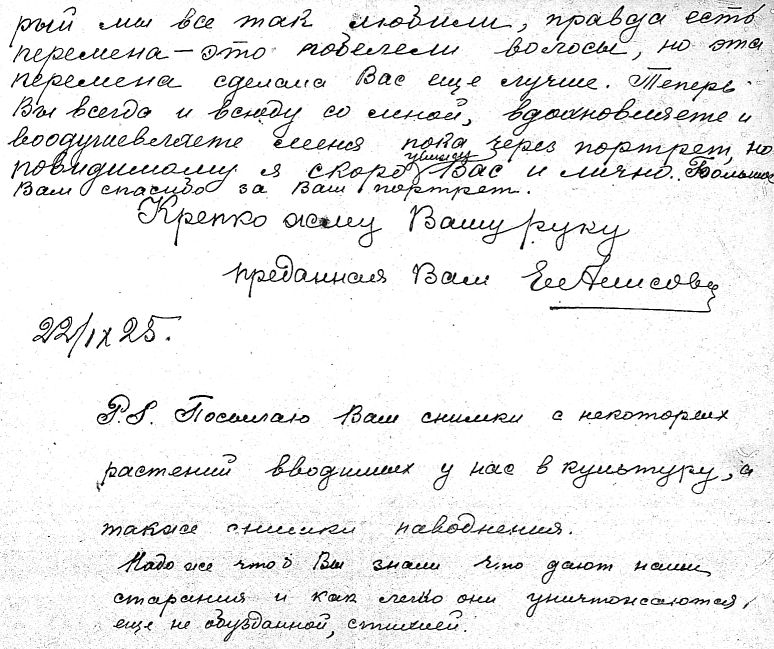 рый мы все так любили, правда есть
перемена — это побелели волосы, но эта
перемена сделала Вас еще лучше. Теперь
Вы всегда и всюду со мной, вдохновляете и
воодушевляете меня пока через портрет, но
увижу
повидимому я скоро Вас и лично. Большое
Вам спасибо за Ваш портрет.
Крепко жму Вашу руку
преданная Вам Ел Анисова
22/IX 25.
P.S. Посылаю Вам снимки с некоторых
растений вводимых у нас в культуру, а
также снимки наводнения.
Надо же чтоб Вы знали что дают наши
старания и как легко они уничтожаются,
еще не обузданной, стихией.